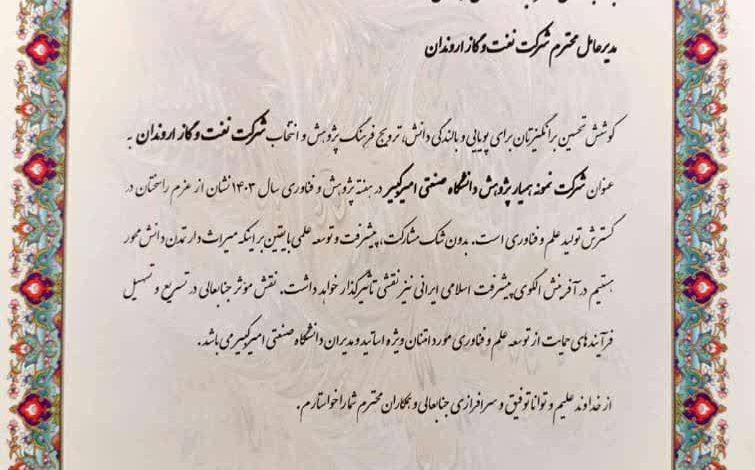 مدیرعامل محترم شرکت نفت و گاز اروندان
کوشش تحسین برانگیزتان برای پویایی و بالندگی دانش، ترویج فرهنگ پژوهش و انتخاب شرکت نفت و گاز اروندان به
عنوان شرکت نمونه همیار پژوهش دانشگاه صنعتی امیرکبیر در هفته پژوهش و فناوری سال ۱۴۰۳ نشان از عزم راسختان در
گسترش تولید علم و فناوری است. بدون شک مشارکت، پیشرفت و توسعه علمی با یقین بر اینکه میراث دار تمدن دانش محور
هستیم در آفرینش الگوی پیشرفت اسلامی ایرانی نیز نقشی تأثیرگذار خواهد داشت. نقش مؤثر جنابعالی در تسریع و تسهیل
فرآیندهای حمایت از توسعه علم و فناوری مورد امتنان ویژه اساتید و مدیران دانشگاه صنعتی امیرکبیر می باشد.
از خداوند علیم و توانا توفیق و سرافرازی جنابعالی و همکاران محترم شما را خواستارم.